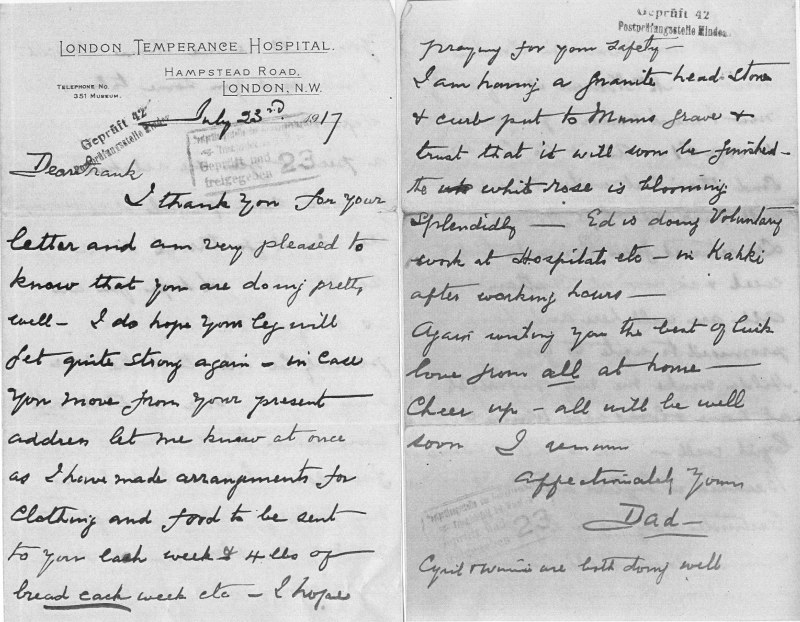 LONDON TEMPERANCE HOSPITAL.
HAMPSTEAD ROAD,
LONDON, N.W.
TELEPHONE NO.
351 MUSEUM.
July 23rd 1917
Geprüft 42
Postprüfungsstelle Minden
Geprüft und
freigegeben 23
Dear Frank
I thank you for your
letter and am very pleased to
know that you are doing pretty
well – I do hope your leg will
get quite strong again – in case
you move from your present
address let me know at once
as I have made arrangements for
clothing and food to be sent
to you each week & 4 lbs of
bread each week etc – I hope
Geprüft 42
Postprüfungsstelle Minden
praying for your safety –
I am having a granite head stone
& curb put to Mums grave &
trust that it will soon be finished –
the white rose is blooming
splendidly — Ed is doing Voluntary
work at Hospitals etc – in Kahki
after working hours —
Again wishing you the best of luck
love from all at home —
Cheer up – all will be well
soon I remain
affectionately yours
Dad –
23
Cyril & Winnie are both doing well